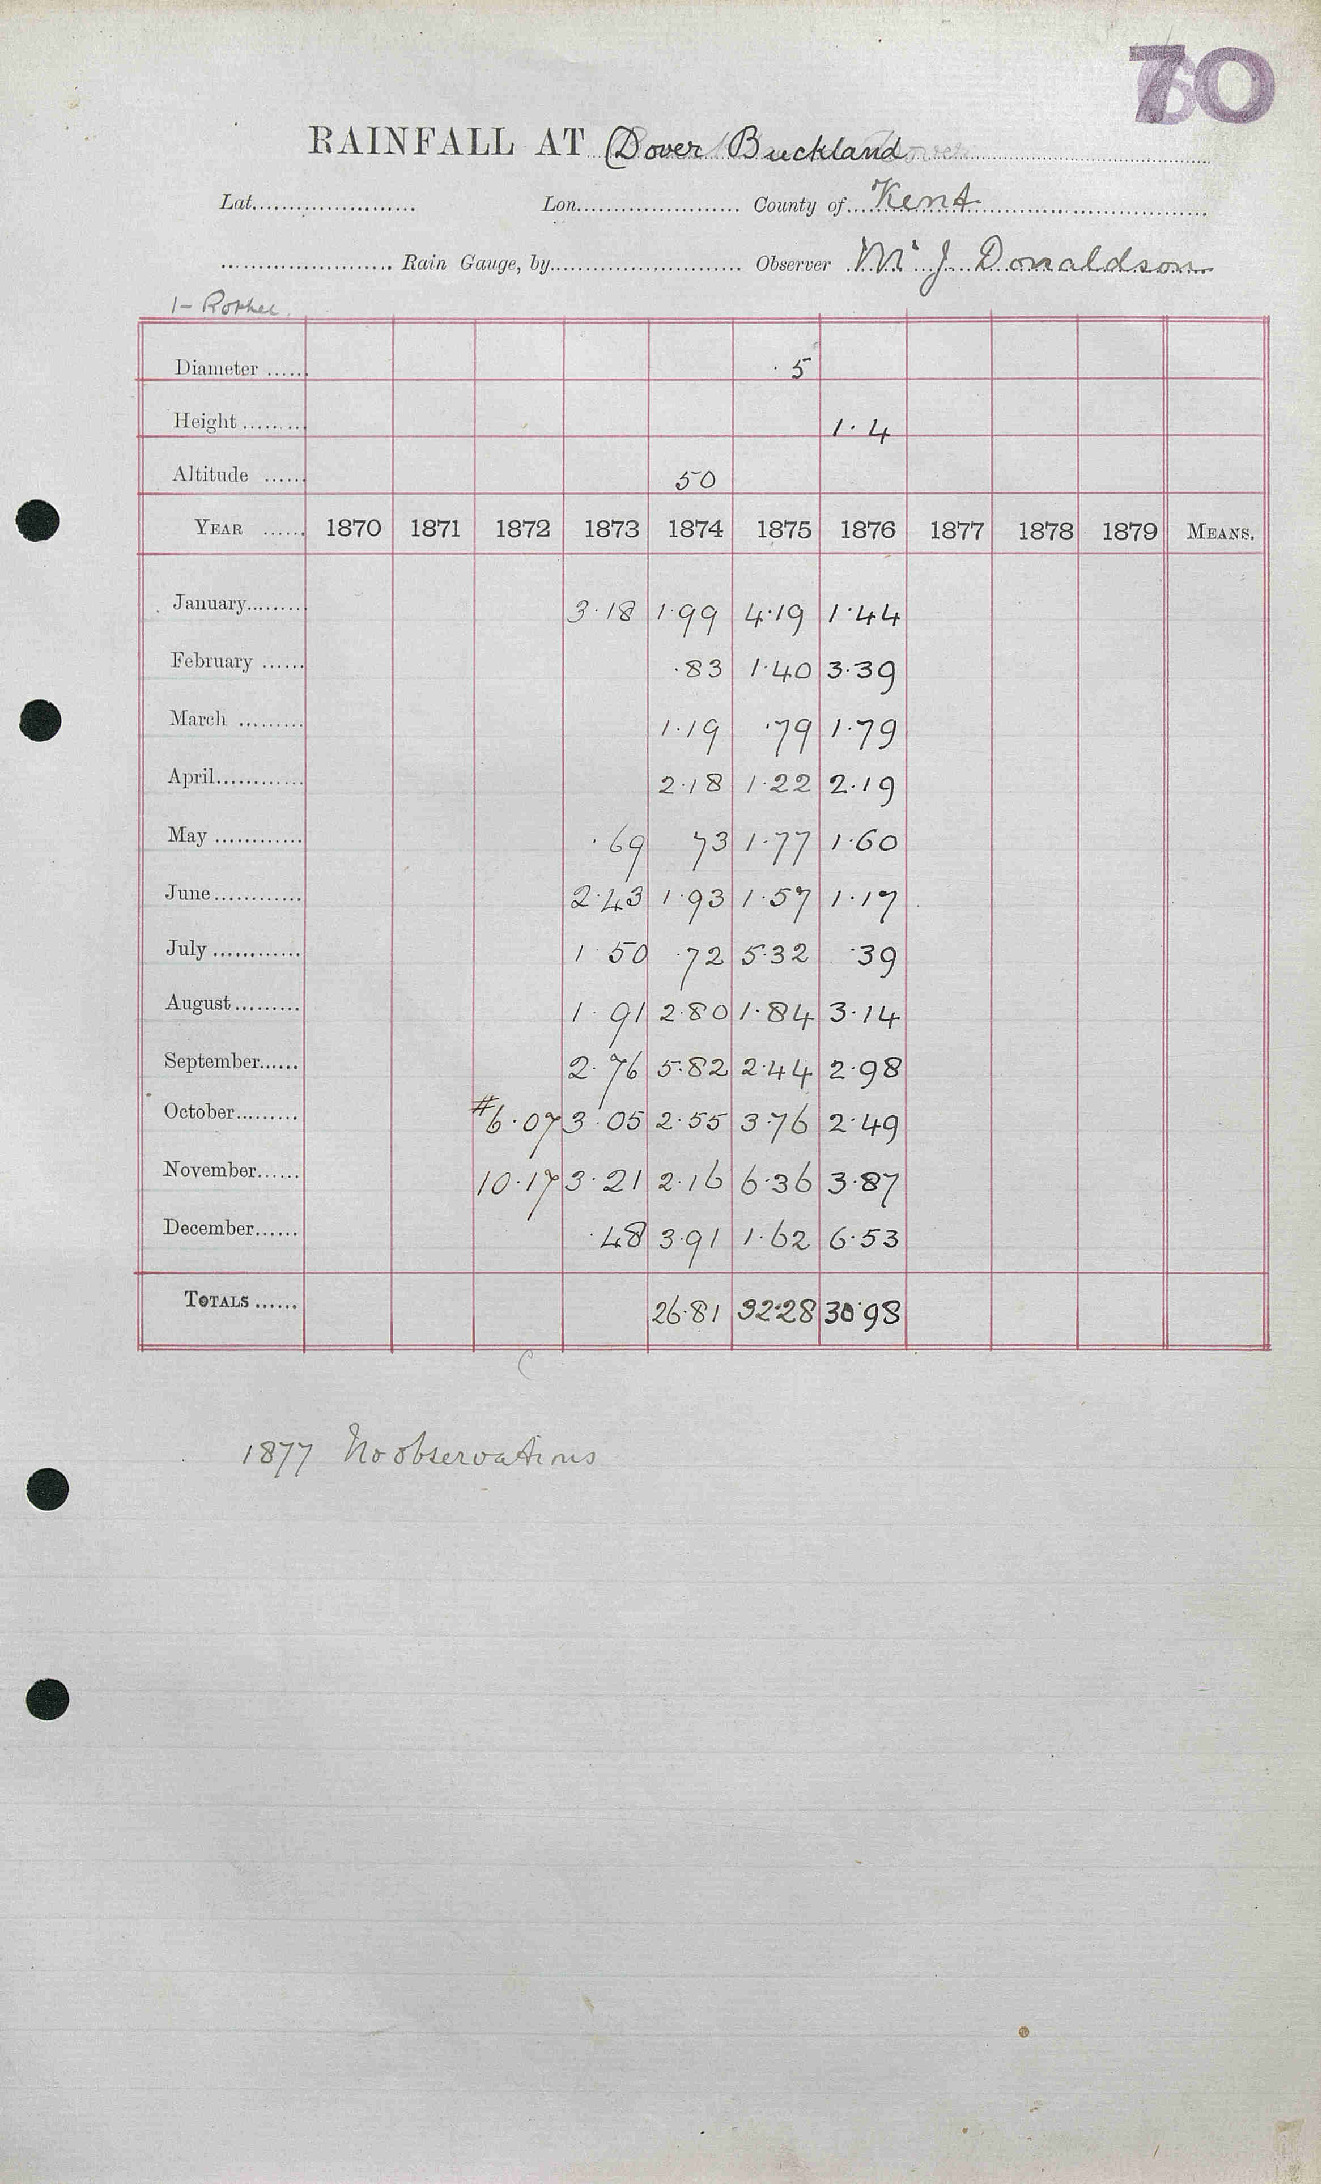 70
RAINFALL AT Dover Buckland
Lat. Lon. County of Kent
Rain Gauge, by Observer Mr J. Donaldson
Diameter 5
Height 1.4
Altitude 50
YEAR 1870 1871 1872 1873 1874 1875 1876 1877 1878 1879 MEANS.
January 3.18 1.99 4.19 1.44
February .83 1.40 3.39
March 1.19 .79 1.79
April 2.18 1.22 2.19
May .69 73 1.77 1.60
June 2.43 1.93 1.57 1.17
July 1 50 .72 5.32 .39
August 1.91 2.80 1.84 3.14
September 2.76 5.82 2.44 2.98
October #6.07 3.05 2.55 3.76 2.49
November 10.17 3.21 2.16 6.36 3.87
December .48 3.91 1.62 6.53
TOTALS 26.81 32.28 30.98
1877 No observations